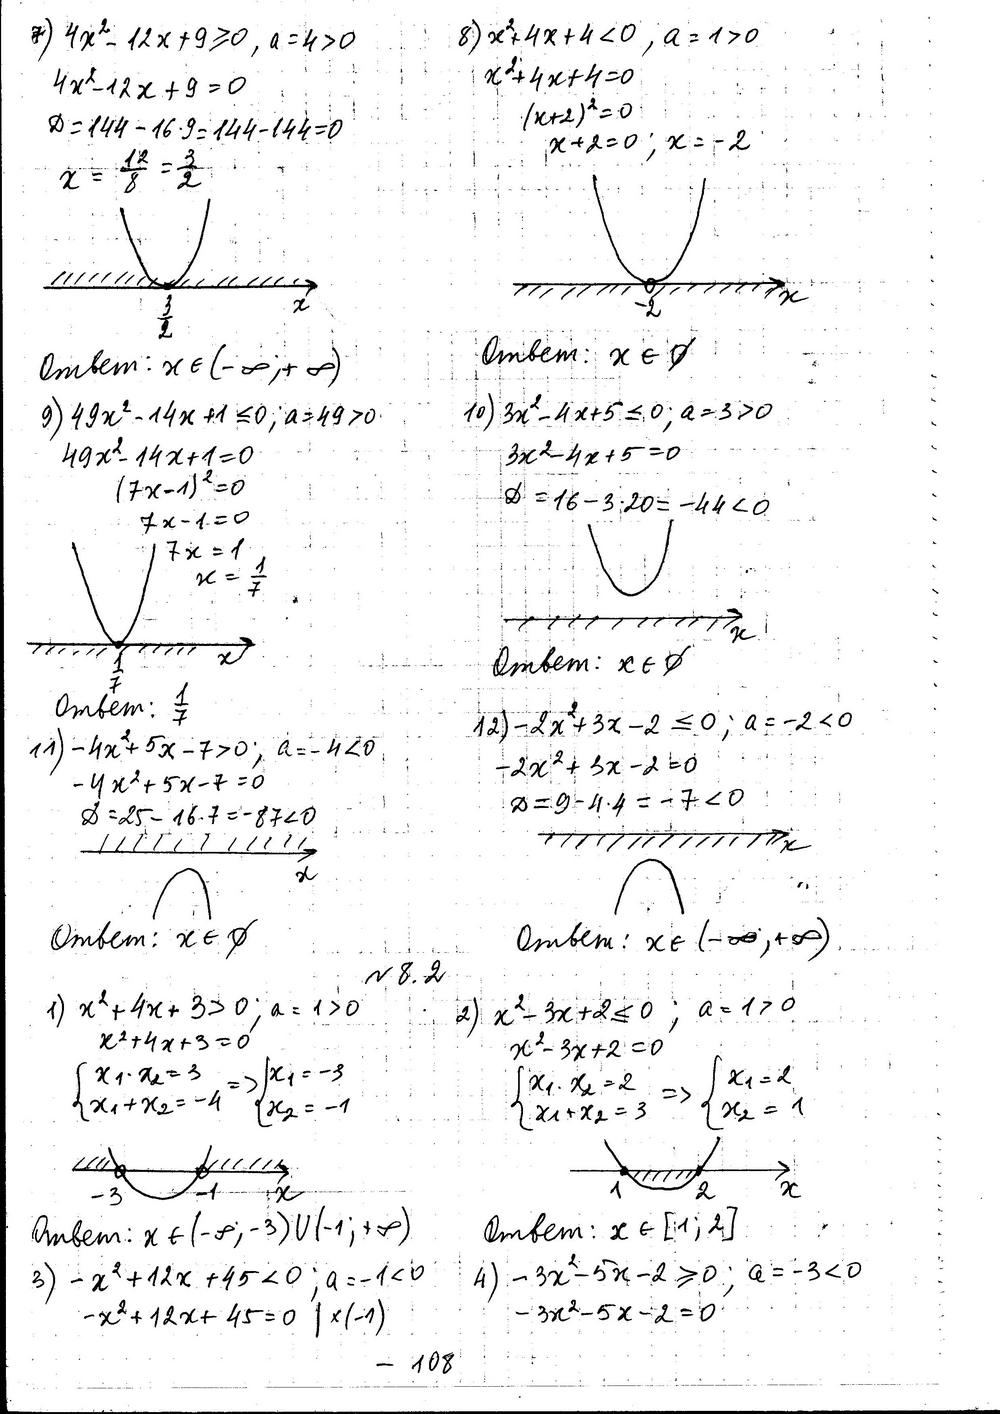 7) 4x² - 12x + 9 ≥ 0, a = 4 > 0
4x² - 12x + 9 = 0
D = 144 - 16·9 = 144 - 144 = 0
x = 12/8 = 3/2
3/2
x
Ответ: x ∈ (-∞; +∞)
8) x² + 4x + 4 < 0, a = 1 > 0
x² + 4x + 4 = 0
(x+2)² = 0
x + 2 = 0; x = -2
-2
x
Ответ: x ∈ ∅
9) 49x² - 14x + 1 ≤ 0; a = 49 > 0
49x² - 14x + 1 = 0
(7x - 1)² = 0
7x - 1 = 0
7x = 1
x = 1/7
1/7
x
Ответ: 1/7
10) 3x² - 4x + 5 ≤ 0; a = 3 > 0
3x² - 4x + 5 = 0
D = 16 - 3·20 = -44 < 0
x
Ответ: x ∈ ∅
11) -4x² + 5x - 7 > 0; a = -4 < 0
-4x² + 5x - 7 = 0
D = 25 - 16·7 = -87 < 0
x
Ответ: x ∈ ∅
12) -2x² + 3x - 2 ≤ 0; a = -2 < 0
-2x² + 3x - 2 = 0
D = 9 - 4·4 = -7 < 0
x
Ответ: x ∈ (-∞; +∞)
№ 8.2
1) x² + 4x + 3 > 0; a = 1 > 0
x² + 4x + 3 = 0
{ x₁·x₂ = 3 => { x₁ = -3
{ x₁ + x₂ = -4 { x₂ = -1
-3 -1 x
Ответ: x ∈ (-∞; -3) ∪ (-1; +∞)
2) x² - 3x + 2 ≤ 0; a = 1 > 0
x² - 3x + 2 = 0
{ x₁·x₂ = 2 => { x₁ = 2
{ x₁ + x₂ = 3 { x₂ = 1
1 2 x
Ответ: x ∈ [1; 2]
3) -x² + 12x + 45 < 0; a = -1 < 0
-x² + 12x + 45 = 0 | ×(-1)
4) -3x² - 5x - 2 ≥ 0; a = -3 < 0
-3x² - 5x - 2 = 0
- 108